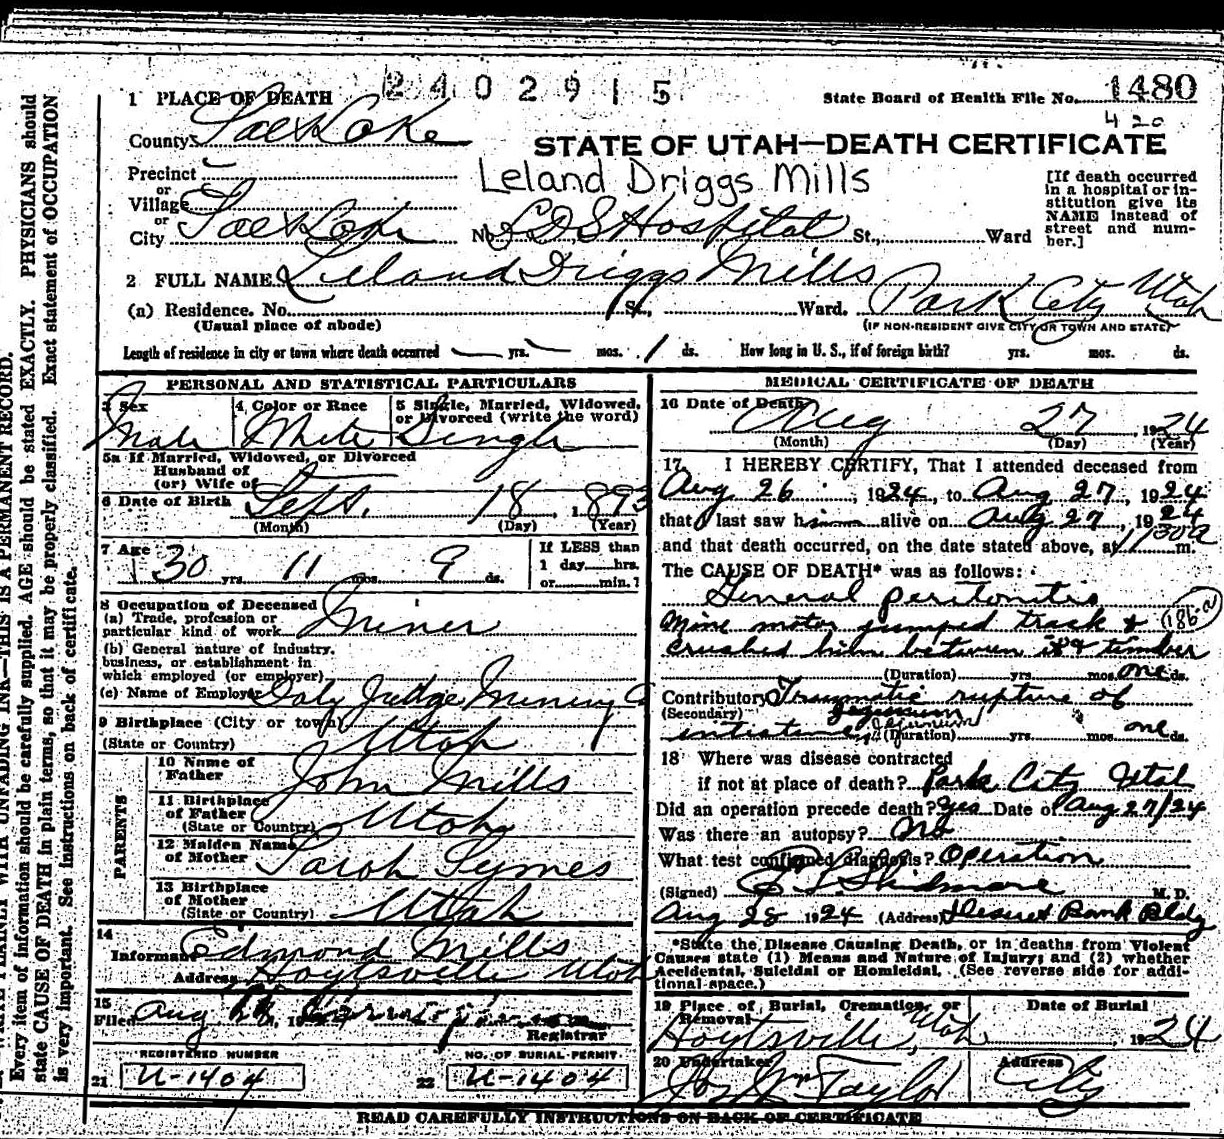 2402915
1 PLACE OF DEATH
State Board of Health File No. 1480
420
County Salt Lake
STATE OF UTAH—DEATH CERTIFICATE
Precinct
Leland Driggs Mills
[If death occurred in a hospital or in-
stitution give its
NAME instead of
street and num-
ber.]
or
Village
or
City Salt Lake No. LDS Hospital St., Ward
2 FULL NAME Leland Driggs Mills
(a) Residence. No. St., Ward. Park City Utah
(Usual place of abode) (IF NON-RESIDENT GIVE CITY OR TOWN AND STATE)
Length of residence in city or town where death occurred — yrs. — mos. 1 ds. How long in U. S., if of foreign birth? yrs. mos. ds.
PERSONAL AND STATISTICAL PARTICULARS
3 Sex 4 Color or Race 5 Single, Married, Widowed,
or Divorced (write the word)
Male White Single
5a If Married, Widowed, or Divorced
Husband of
(or) Wife of
6 Date of Birth Sept. 18, 1893
(Month) (Day) (Year)
7 Age 30 yrs. 11 mos. 9 ds.
If LESS than
1 day hrs.
or min.?
8 Occupation of Deceased
(a) Trade, profession or
particular kind of work Miner
(b) General nature of industry,
business, or establishment in
which employed (or employer)
(c) Name of Employer Daly Judge Mining Co
9 Birthplace (City or town)
(State or Country) Utah
PARENTS
10 Name of
Father John Mills
11 Birthplace
of Father
(State or Country) Utah
12 Maiden Name
of Mother Sarah Symes
13 Birthplace
of Mother
(State or Country) Utah
14
Informant Edmond Mills
Address Hoytsville Utah
15
Filed Aug 192
Registrar
REGISTERED NUMBER NO. OF BURIAL PERMIT
21 U-1404 22 U-1404
MEDICAL CERTIFICATE OF DEATH
16 Date of Death Aug 27 1924
(Month) (Day) (Year)
17 I HEREBY CERTIFY, That I attended deceased from
Aug 26, 1924, to Aug 27, 1924
that I last saw him alive on Aug 27, 1924
and that death occurred, on the date stated above, at 1130a m.
The CAUSE OF DEATH* was as follows:
General peritonitis
Mine motor jumped track & 186-a
crushed him between it & timber
(Duration) yrs. mos. one ds.
Contributory Traumatic rupture of
(Secondary) Jejunum
intestine, Jejunum (Duration) yrs. mos. one ds.
18 Where was disease contracted
if not at place of death? Park City Utah
Did an operation precede death? Yes Date of Aug 27/24
Was there an autopsy? No
What test confirmed diagnosis? Operation
(Signed) Skidmore M. D.
Aug 28 1924 (Address) Deseret Bank Bldg
*State the Disease Causing Death, or in deaths from Violent
Causes state (1) Means and Nature of Injury; and (2) whether
Accidental, Suicidal or Homicidal. (See reverse side for addi-
tional space.)
19 Place of Burial, Cremation, or
Removal Date of Burial
Hoytsville, Utah 1924
20 Undertaker Address
Jos Wm Taylor City
READ CAREFULLY INSTRUCTIONS ON BACK OF CERTIFICATE
WRITE PLAINLY WITH UNFADING INK—THIS IS A PERMANENT RECORD.
Every item of information should be carefully supplied. AGE should be stated EXACTLY. PHYSICIANS should
state CAUSE OF DEATH in plain terms, so that it may be properly classified. Exact statement of OCCUPATION
is very important. See instructions on back of certificate.